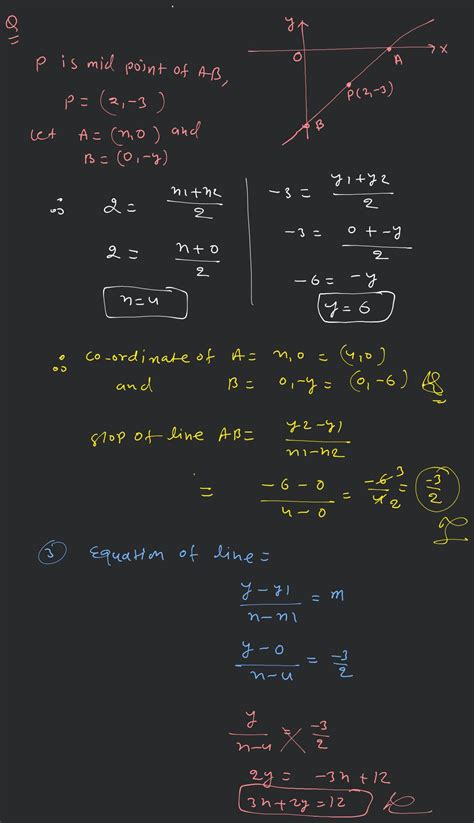 Q
y
O
A
x
P(2,-3)
B
P is mid point of AB,
P = (2,-3)
Let A = (x,0) and
B = (0,-y)
∴ 2 = (x1+x2)/2
2 = (x+0)/2
x=4
-3 = (y1+y2)/2
-3 = (0+-y)/2
-6 = -y
y = 6
∴ co-ordinate of A = x,0 = (4,0)
and B = 0,-y = (0,-6)
slop of line AB = (y2-y1)/(x1-x2)
= (-6-0)/(4-0) = -6/4 3/2 = -3/2
3 Equation of line =
(y-y1)/(x-x1) = m
(y-0)/(x-4) = -3/2
y/(x-4) = -3/2
2y = -3x+12
3x+2y=12